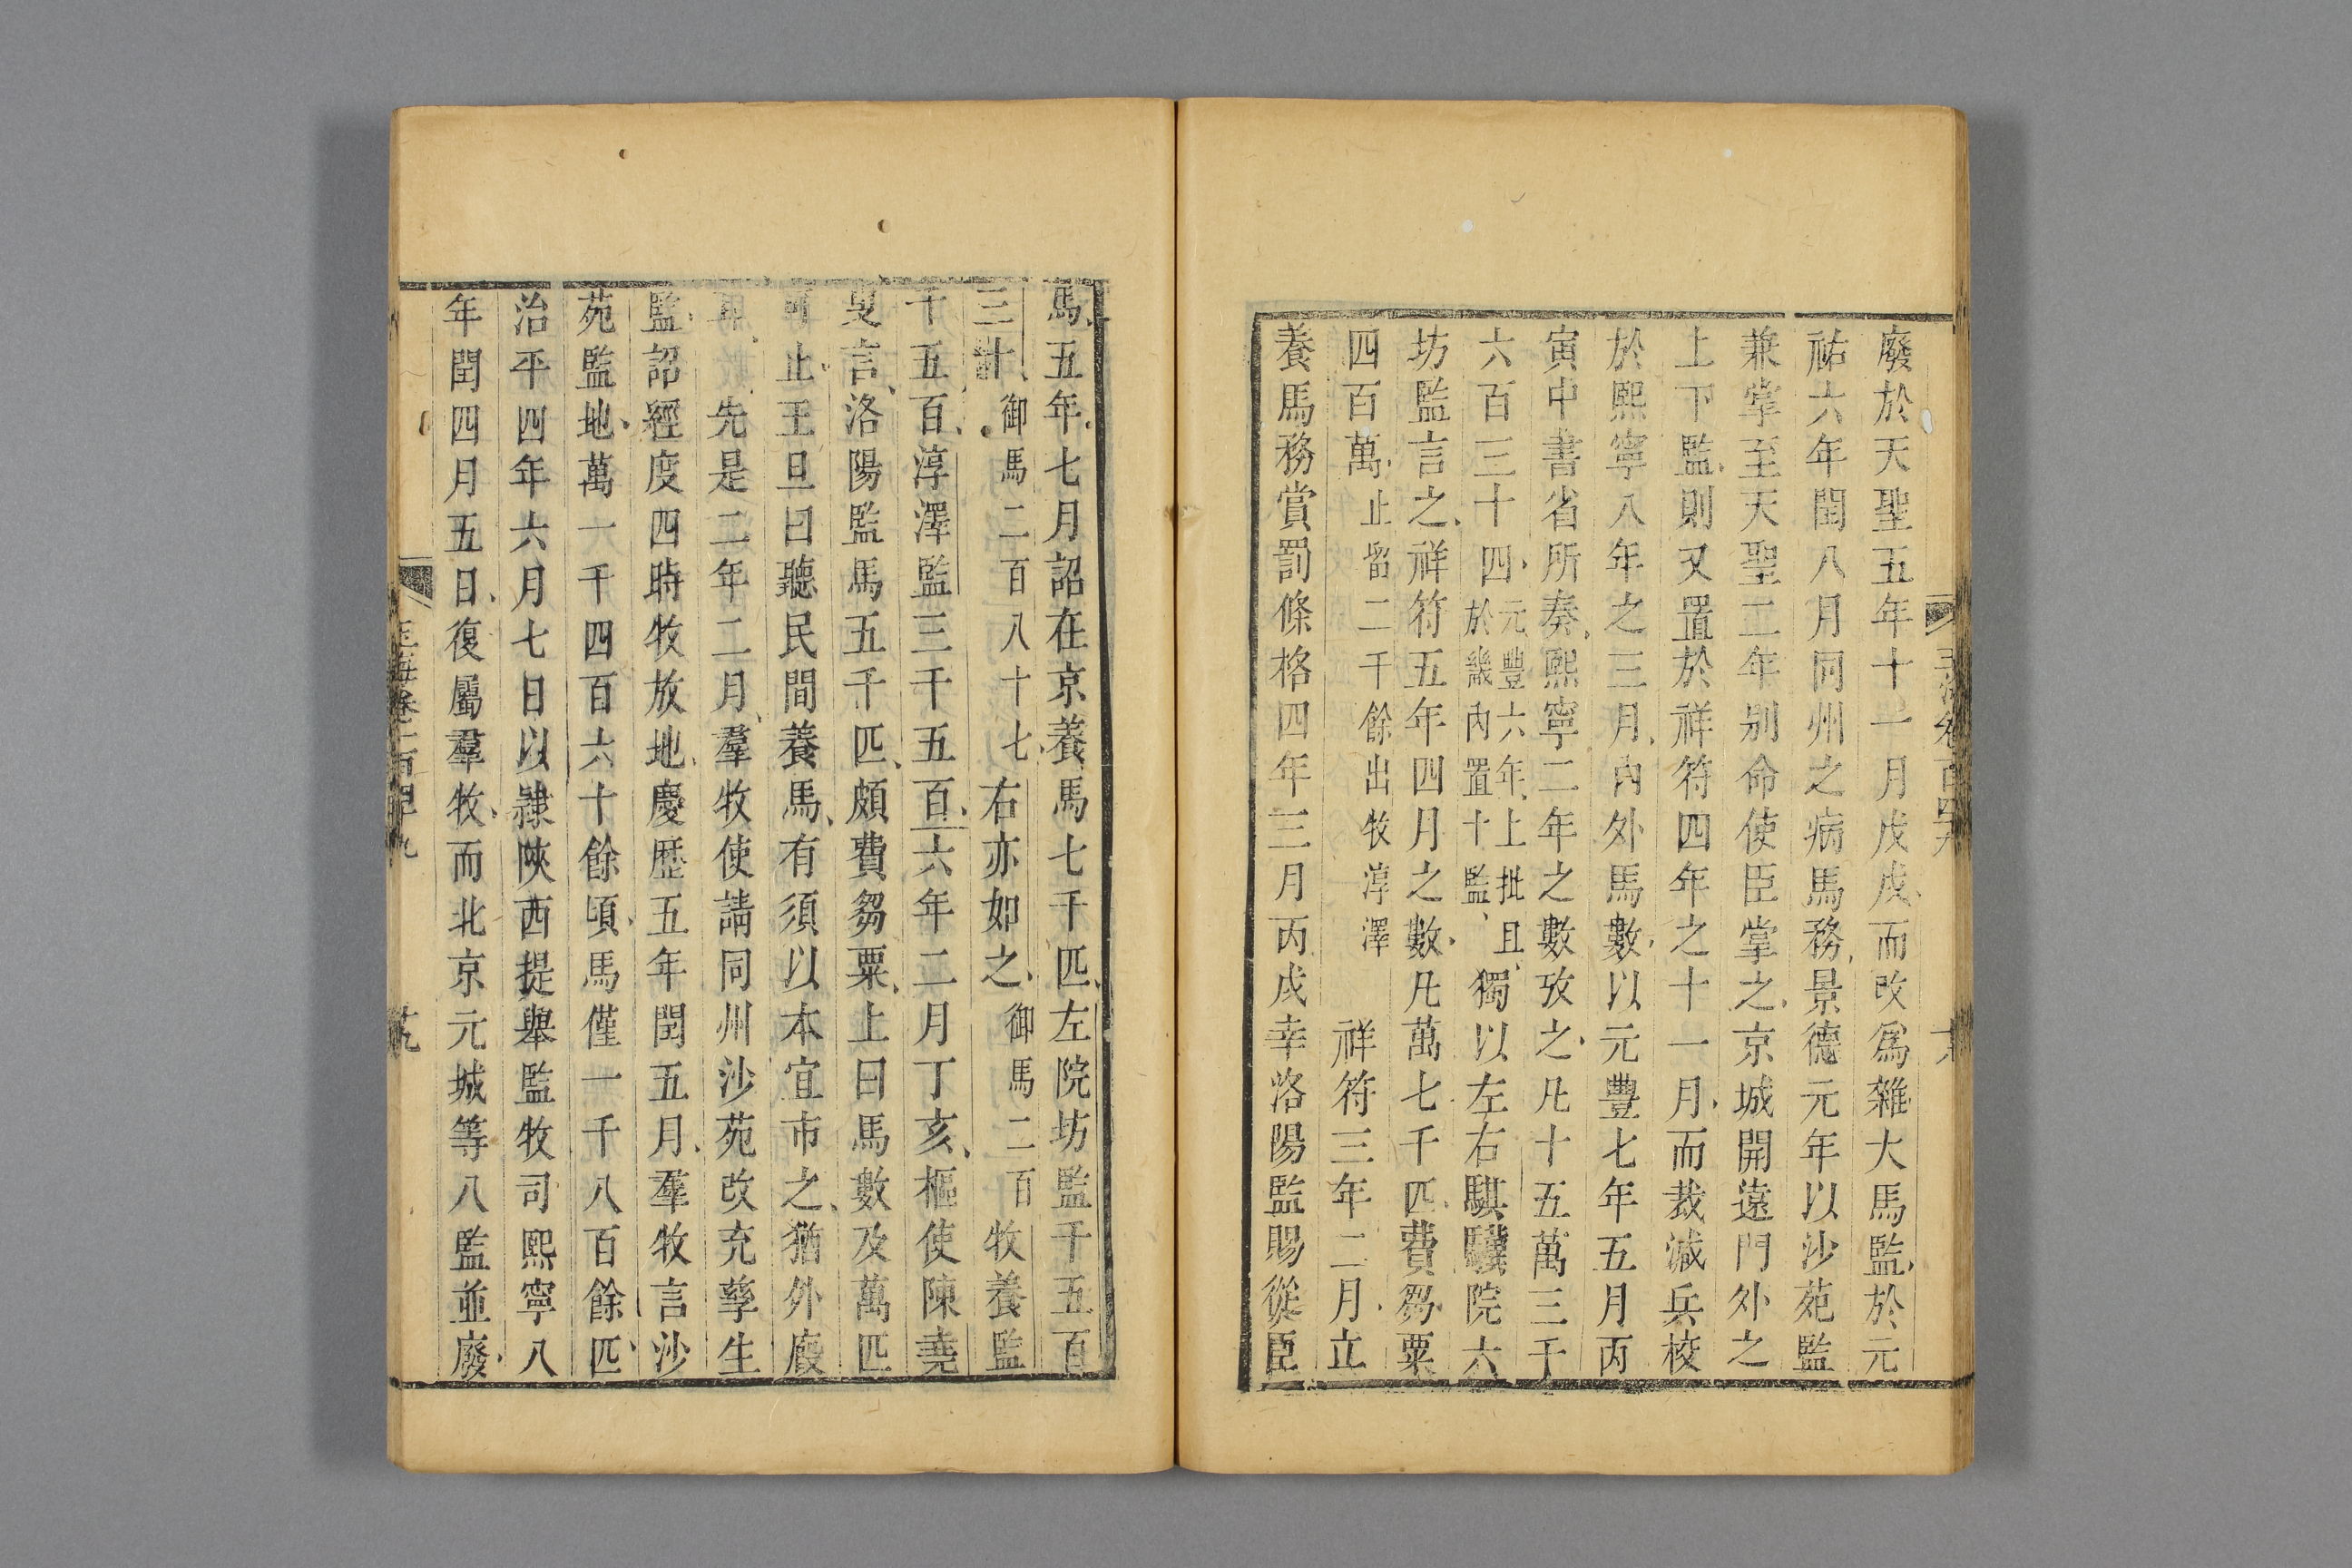 廢於天聖五年十一月戊戌而改爲雜大馬監於元
祐六年閏八月同州之病馬務景德元年以沙苑監
兼掌至天聖二年别命使臣掌之京城開遠門外之
上下監則又置於祥符四年之十一月而裁減兵校
於熙寧八年之三月内外馬數以元豐七年五月丙
寅中書省所奏熙寧二年之數攷之凡十五萬三千
六百三十四元豐六年上批且於畿内置十監獨以左右騏驥院六
坊監言之祥符五年四月之數凡萬七千匹費芻粟
四百萬止留二千餘出牧淳澤祥符三年二月立
養馬務賞罰條格四年三月丙戌幸洛陽監賜從臣
馬五年七月詔在京養馬七千匹左院坊監千五百
三十御馬二百八十七右亦如之御馬二百牧養監
千五百淳澤監三千五百六年二月丁亥樞使陳堯
叟言洛陽監馬五千匹頗費芻粟上曰馬數及萬匹
可止王旦曰聽民間養馬有須以本宜市之猶外廐
耳先是二年二月羣牧使請同州沙苑改充孳生
監詔經度四時牧放地慶歷五年閏五月羣牧言沙
苑監地萬一千四百六十餘頃馬僅一千八百餘匹
治平四年六月七日以隷陜西提舉監牧司熙寧八
年閏四月五日復屬羣牧而北京元城等八監並廢